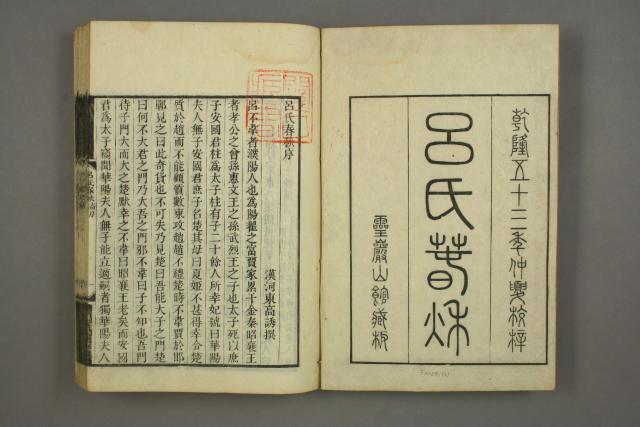 乾隆五十三年仲夏校梓
呂氏春秋
靈巖山館藏板
呂氏春秋序
漢河東高誘撰
呂不韋者濮陽人也爲陽翟之富賈家累千金秦昭襄王
者孝公之曾孫惠文王之孫武烈王之子也太子死以庶
子安國君柱爲太子柱有子二十餘人所幸妃號曰華陽
夫人無子安國君庶子名楚其母曰夏姬不甚得幸令楚
質於趙而不能顧質數東攻趙趙不禮楚時不韋賈於邯
鄲見之曰此奇貨也不可失乃見楚曰吾能大子之門楚
曰何不大君之門乃大吾之門邪不韋曰子不知也吾門
待子門大而大之楚默幸之不韋曰昭襄王老矣而安國
君爲太子竊聞華陽夫人無子能立適嗣者獨華陽夫人